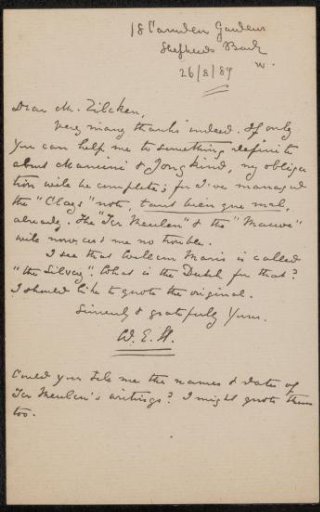 18 Camden Gardens
Shepherds Bush
W.
26/8/89
Dear Mr. Zilcken,
Very many thanks indeed. If only
you can help me to something definite
about Mancini & Jongkind, my obliga
tion will be complete; for I've managed
the "Clays" note, tant bien que mal,
already. The "Ter Meulen" & the "Mauve"
will now cost me no trouble.
I see that Willem Maris is called
"the Silvery". What is the Dutch for that?
I should like to quote the original.
Sincerely & gratefully Yours.
W. E. H.
Could you tell me the names & dates of
Ter Meulen's writings? I might quote them
too.